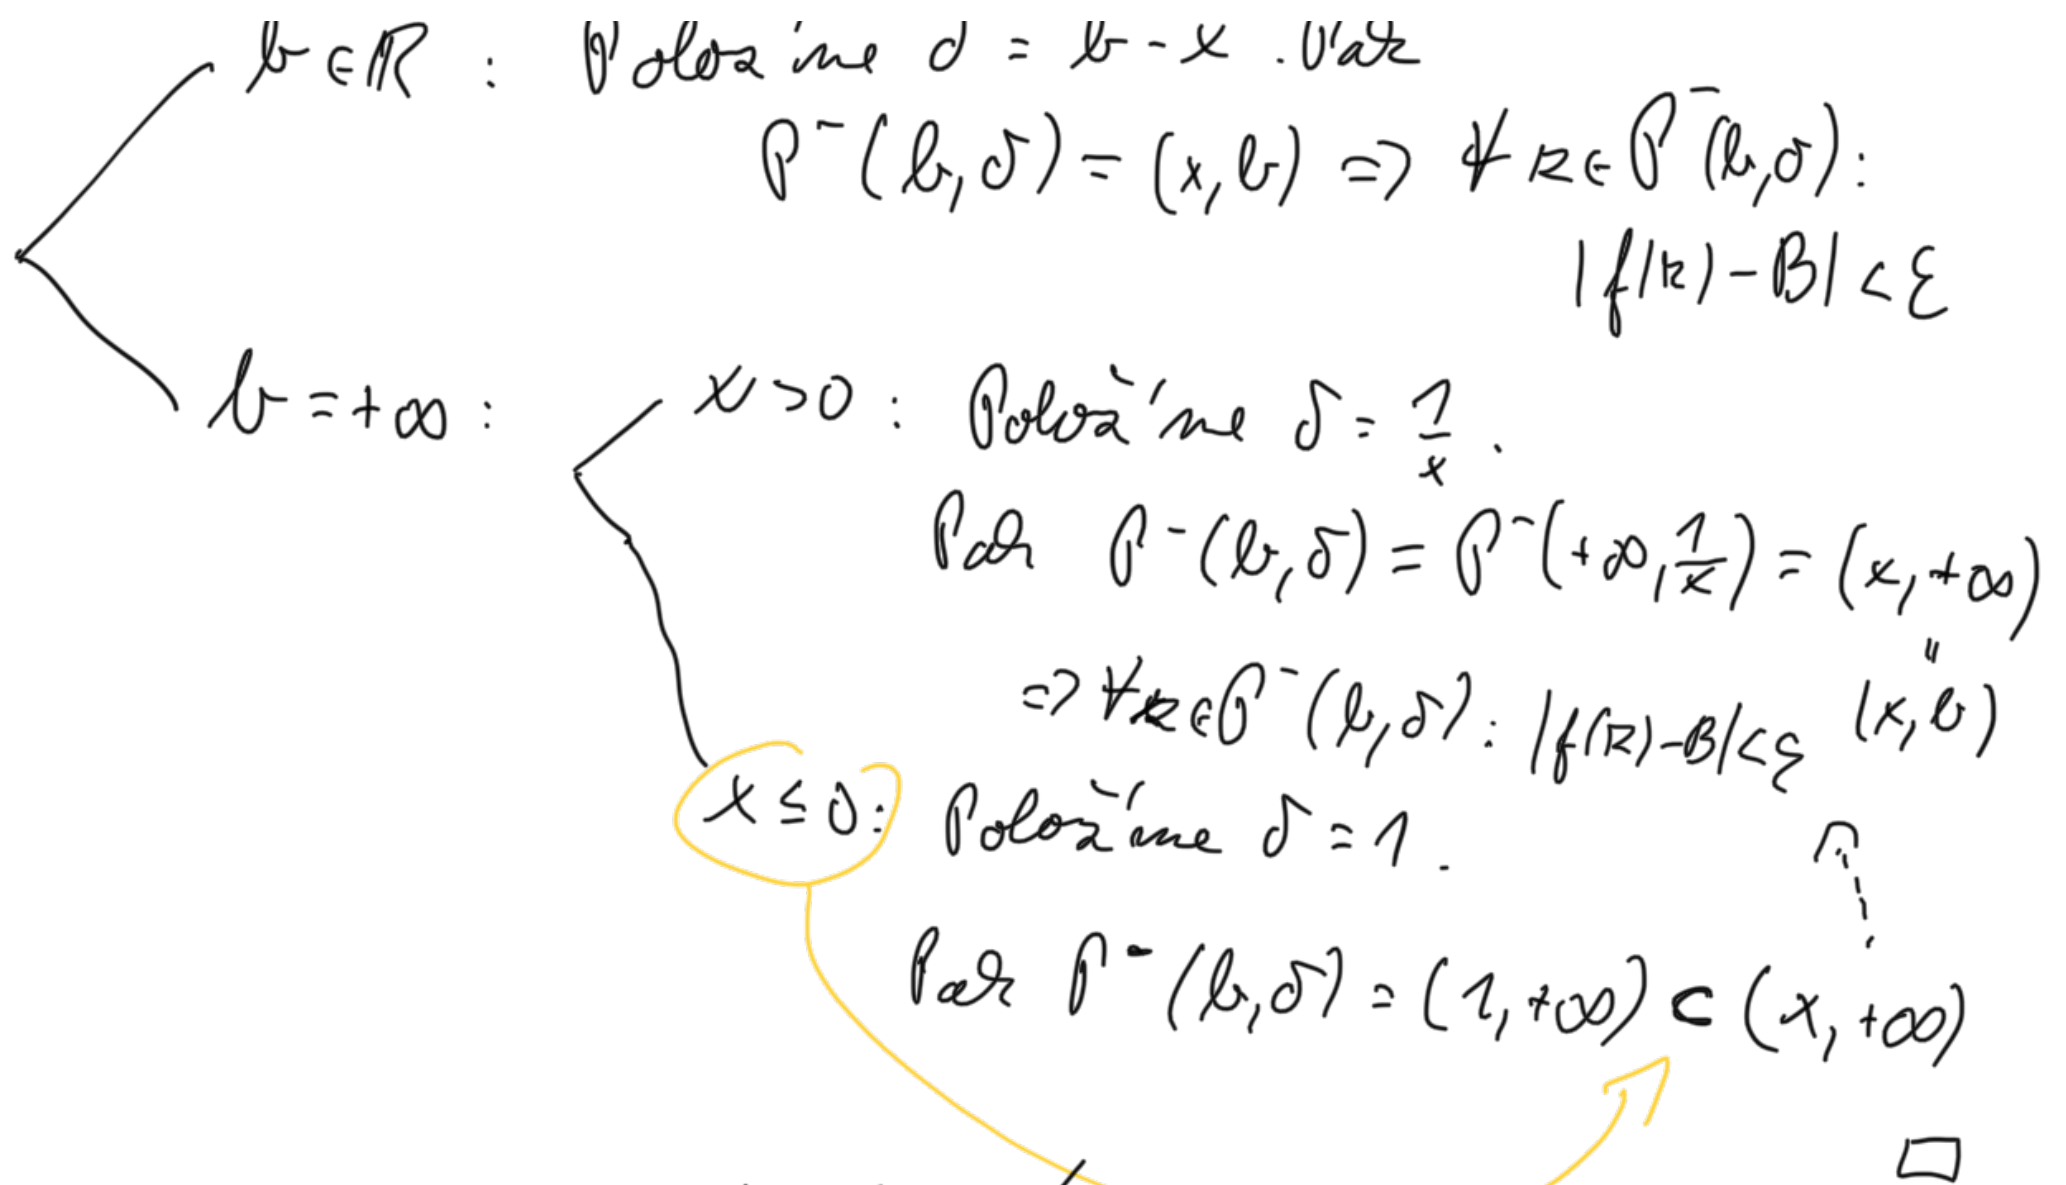 b ∈ ℝ : Položíme δ = b - x . Pak
P⁻(b, δ) = (x, b) ⇒ ∀ z ∈ P⁻(b, δ) :
|f(z) - B| < ε
b = +∞ : x > 0 : Položíme δ = 1/x .
Pak P⁻(b, δ) = P⁻(+∞, 1/x) = (x, +∞)
⇒ ∀ z ∈ P⁻(b, δ) : |f(z) - B| < ε = (x, b)
x ≤ 0 : Položíme δ = 1 .
Pak P⁻(b, δ) = (1, +∞) ⊂ (x, +∞)